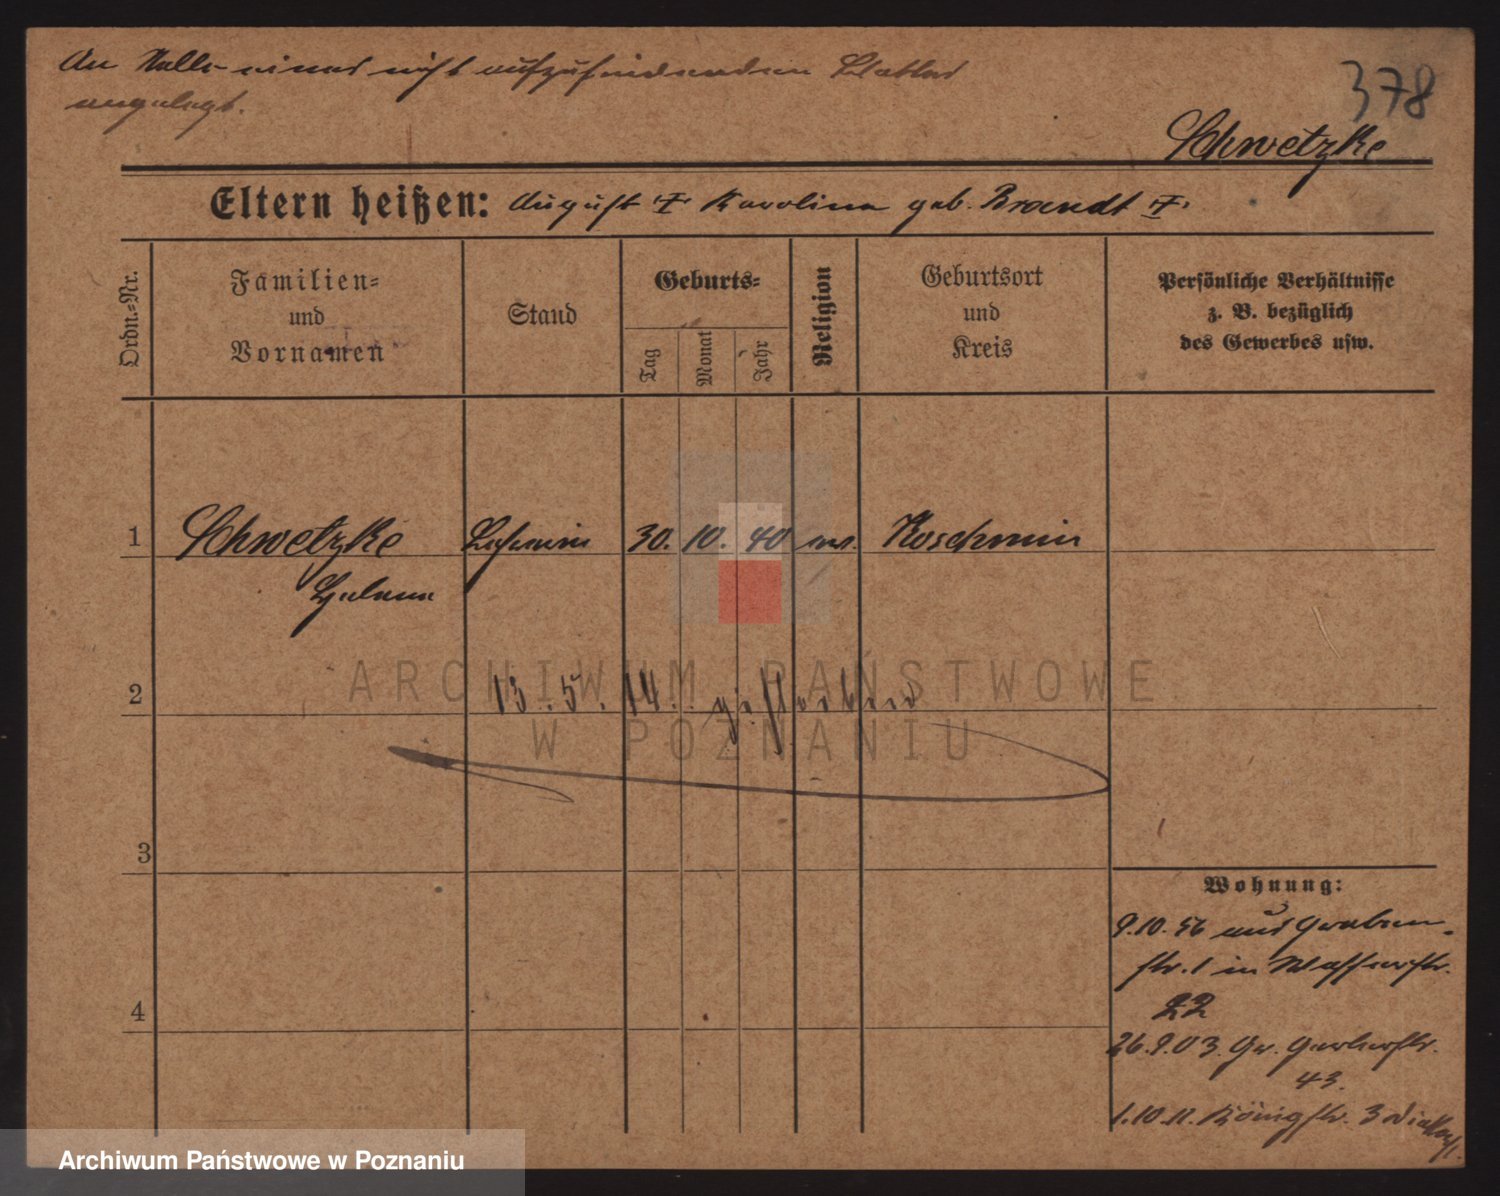 An Stelle eines nicht aufzufindenden Blattes
angelegt.
378
Schwetzke
Eltern heißen: August † Karolina geb. Brandt †
Ordn.=Nr.
Familien=
und
Vornamen
Stand
Geburts=
Tag
Monat
Jahr
Religion
Geburtsort
und
Kreis
Persönliche Verhältnisse
z. B. bezüglich
des Gewerbes usw.
1 Schwetzke 30. 10. 40 Koschmin
2 13. 5. 14. gestorben
3
4
ARCHIWUM PAŃSTWOWE
W POZNANIU
Wohnung:
9.10.56 aus Graben-
str. 1 in Wasserstr.
22
26.9.03. Gr. Gerberstr.
43.
1.10.11. Königstr. 3
Archiwum Państwowe w Poznaniu